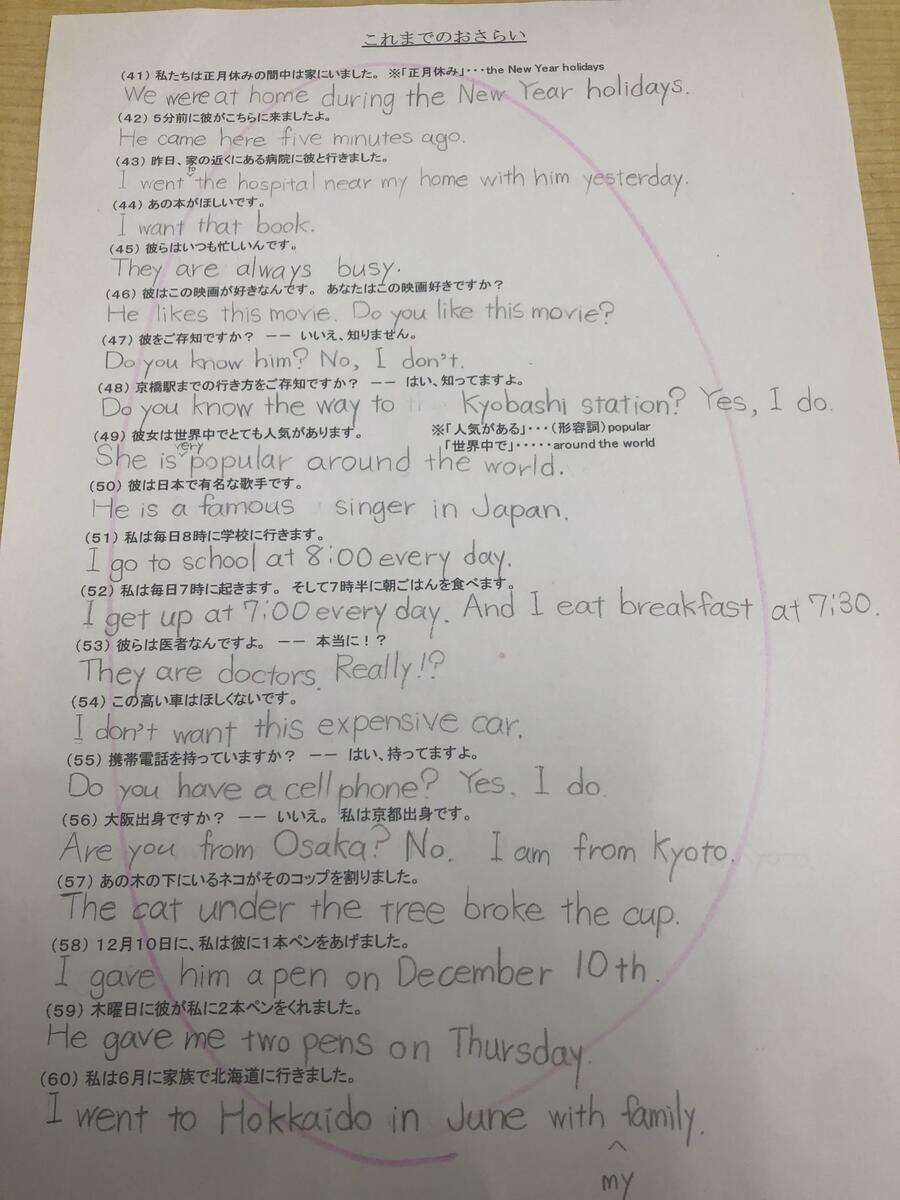 これまでのおさらい
(41) 私たちは正月休みの間中は家にいました。 ※「正月休み」･･･the New Year holidays
We were at home during the New Year holidays.
(42) 5分前に彼がこちらに来ましたよ。
He came here five minutes ago.
(43) 昨日、家の近くにある病院に彼と行きました。
I went to the hospital near my home with him yesterday.
(44) あの本がほしいです。
I want that book.
(45) 彼らはいつも忙しいんです。
They are always busy.
(46) 彼はこの映画が好きなんです。 あなたはこの映画好きですか？
He likes this movie. Do you like this movie?
(47) 彼をご存知ですか？ ―― いいえ、知りません。
Do you know him? No, I don't.
(48) 京橋駅までの行き方をご存知ですか？ ―― はい、知ってますよ。
Do you know the way to Kyobashi station? Yes, I do.
(49) 彼女は世界中でとても人気があります。 ※「人気がある」･･･(形容詞)popular
「世界中で」･････around the world
She is very popular around the world.
(50) 彼は日本で有名な歌手です。
He is a famous singer in Japan.
(51) 私は毎日8時に学校に行きます。
I go to school at 8:00 every day.
(52) 私は毎日7時に起きます。 そして7時半に朝ごはんを食べます。
I get up at 7:00 every day. And I eat breakfast at 7:30.
(53) 彼らは医者なんですよ。 ―― 本当に！？
They are doctors. Really!?
(54) この高い車はほしくないです。
I don't want this expensive car.
(55) 携帯電話を持っていますか？ ―― はい、持ってますよ。
Do you have a cell phone? Yes, I do.
(56) 大阪出身ですか？ ―― いいえ。 私は京都出身です。
Are you from Osaka? No. I am from Kyoto.
(57) あの木の下にいるネコがそのコップを割りました。
The cat under the tree broke the cup.
(58) 12月10日に、私は彼に1本ペンをあげました。
I gave him a pen on December 10th.
(59) 木曜日に彼が私に2本ペンをくれました。
He gave me two pens on Thursday.
(60) 私は6月に家族で北海道に行きました。
I went to Hokkaido in June with family.
my